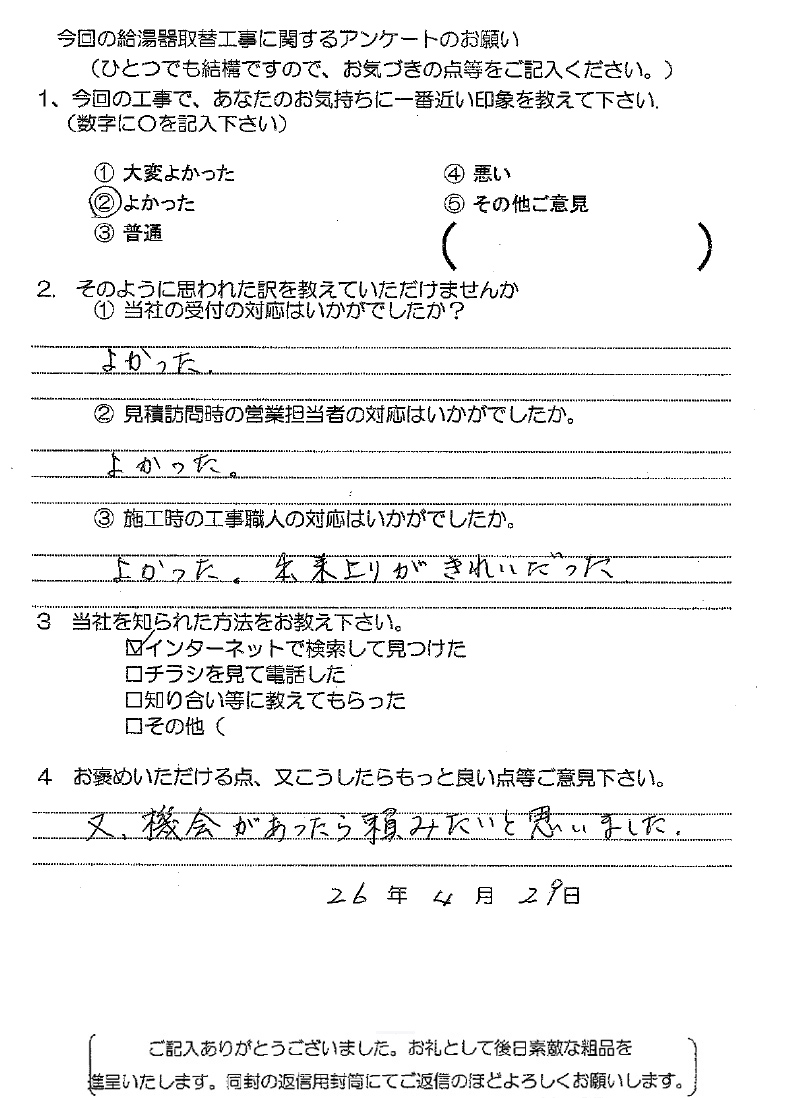 今回の給湯器取替工事に関するアンケートのお願い
（ひとつでも結構ですので、お気づきの点等をご記入ください。）
1、今回の工事で、あなたのお気持ちに一番近い印象を教えて下さい.
（数字に〇を記入下さい）
① 大変よかった ④ 悪い
② よかった ⑤ その他ご意見
③ 普通 （ ）
2. そのように思われた訳を教えていただけませんか
① 当社の受付の対応はいかがでしたか？
よかった.
② 見積訪問時の営業担当者の対応はいかがでしたか。
よかった。
③ 施工時の工事職人の対応はいかがでしたか。
よかった。出来上りがきれいだった
3 当社を知られた方法をお教え下さい。
☑インターネットで検索して見つけた
□チラシを見て電話した
□知り合い等に教えてもらった
□その他（
4 お褒めいただける点、又こうしたらもっと良い点等ご意見下さい。
又、機会があったら頼みたいと思いました.
26 年 4 月 29日
ご記入ありがとうございました。お礼として後日素敵な粗品を
進呈いたします。同封の返信用封筒にてご返信のほどよろしくお願いします。